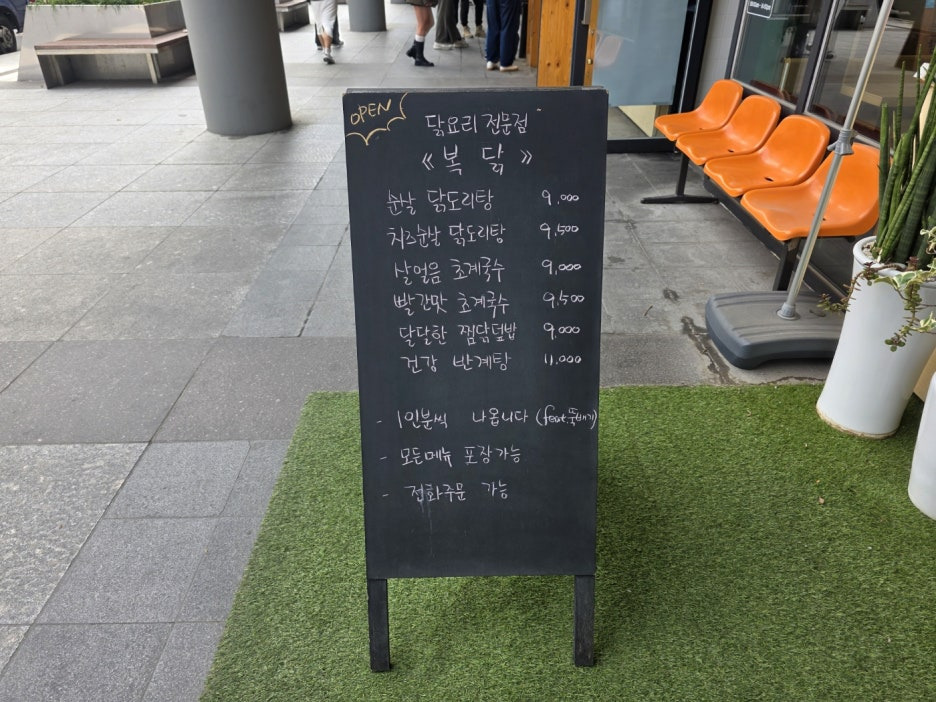 OPEN
닭요리 전문점
《 복 닭 》
순살 닭도리탕 9,000
치즈순살 닭도리탕 9,500
살얼음 초계국수 9,000
빨간맛 초계국수 9,500
달달한 찜닭덮밥 9,000
건강 반계탕 11,000
- 1인분씩 나옵니다 (feat.뚝배기)
- 모든메뉴 포장가능
- 전화주문 가능